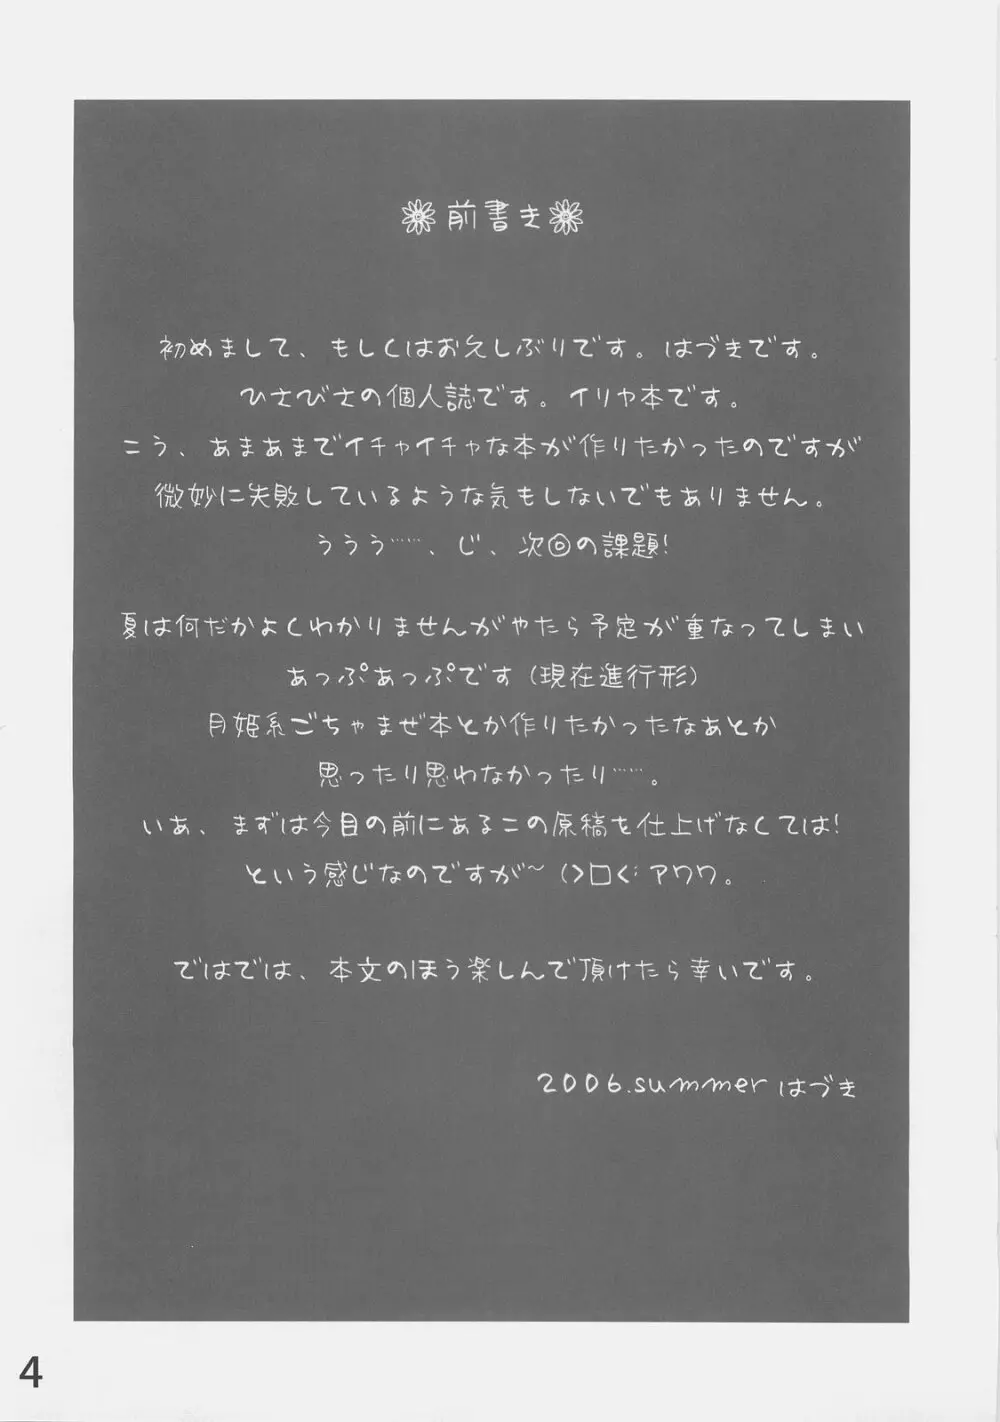 前書き
初めまして、もしくはお久しぶりです。はづきです。
ひさびさの個人誌です。イリヤ本です。
こう、あまあまでイチャイチャな本が作りたかったのですが
微妙に失敗しているような気もしないでもありません。
ううう……、じ、次回の課題!
夏は何だかよくわかりませんがやたら予定が重なってしまい
あっぷあっぷです(現在進行形)
月姫系ごちゃまぜ本とか作りたかったなあとか
思ったり思わなかったり……。
いあ、まずは今目の前にあるこの原稿を仕上げなくては!
という感じなのですが〜 (>□<;アワワ。
ではでは、本文のほう楽しんで頂けたら幸いです。
2006.summer はづき
4